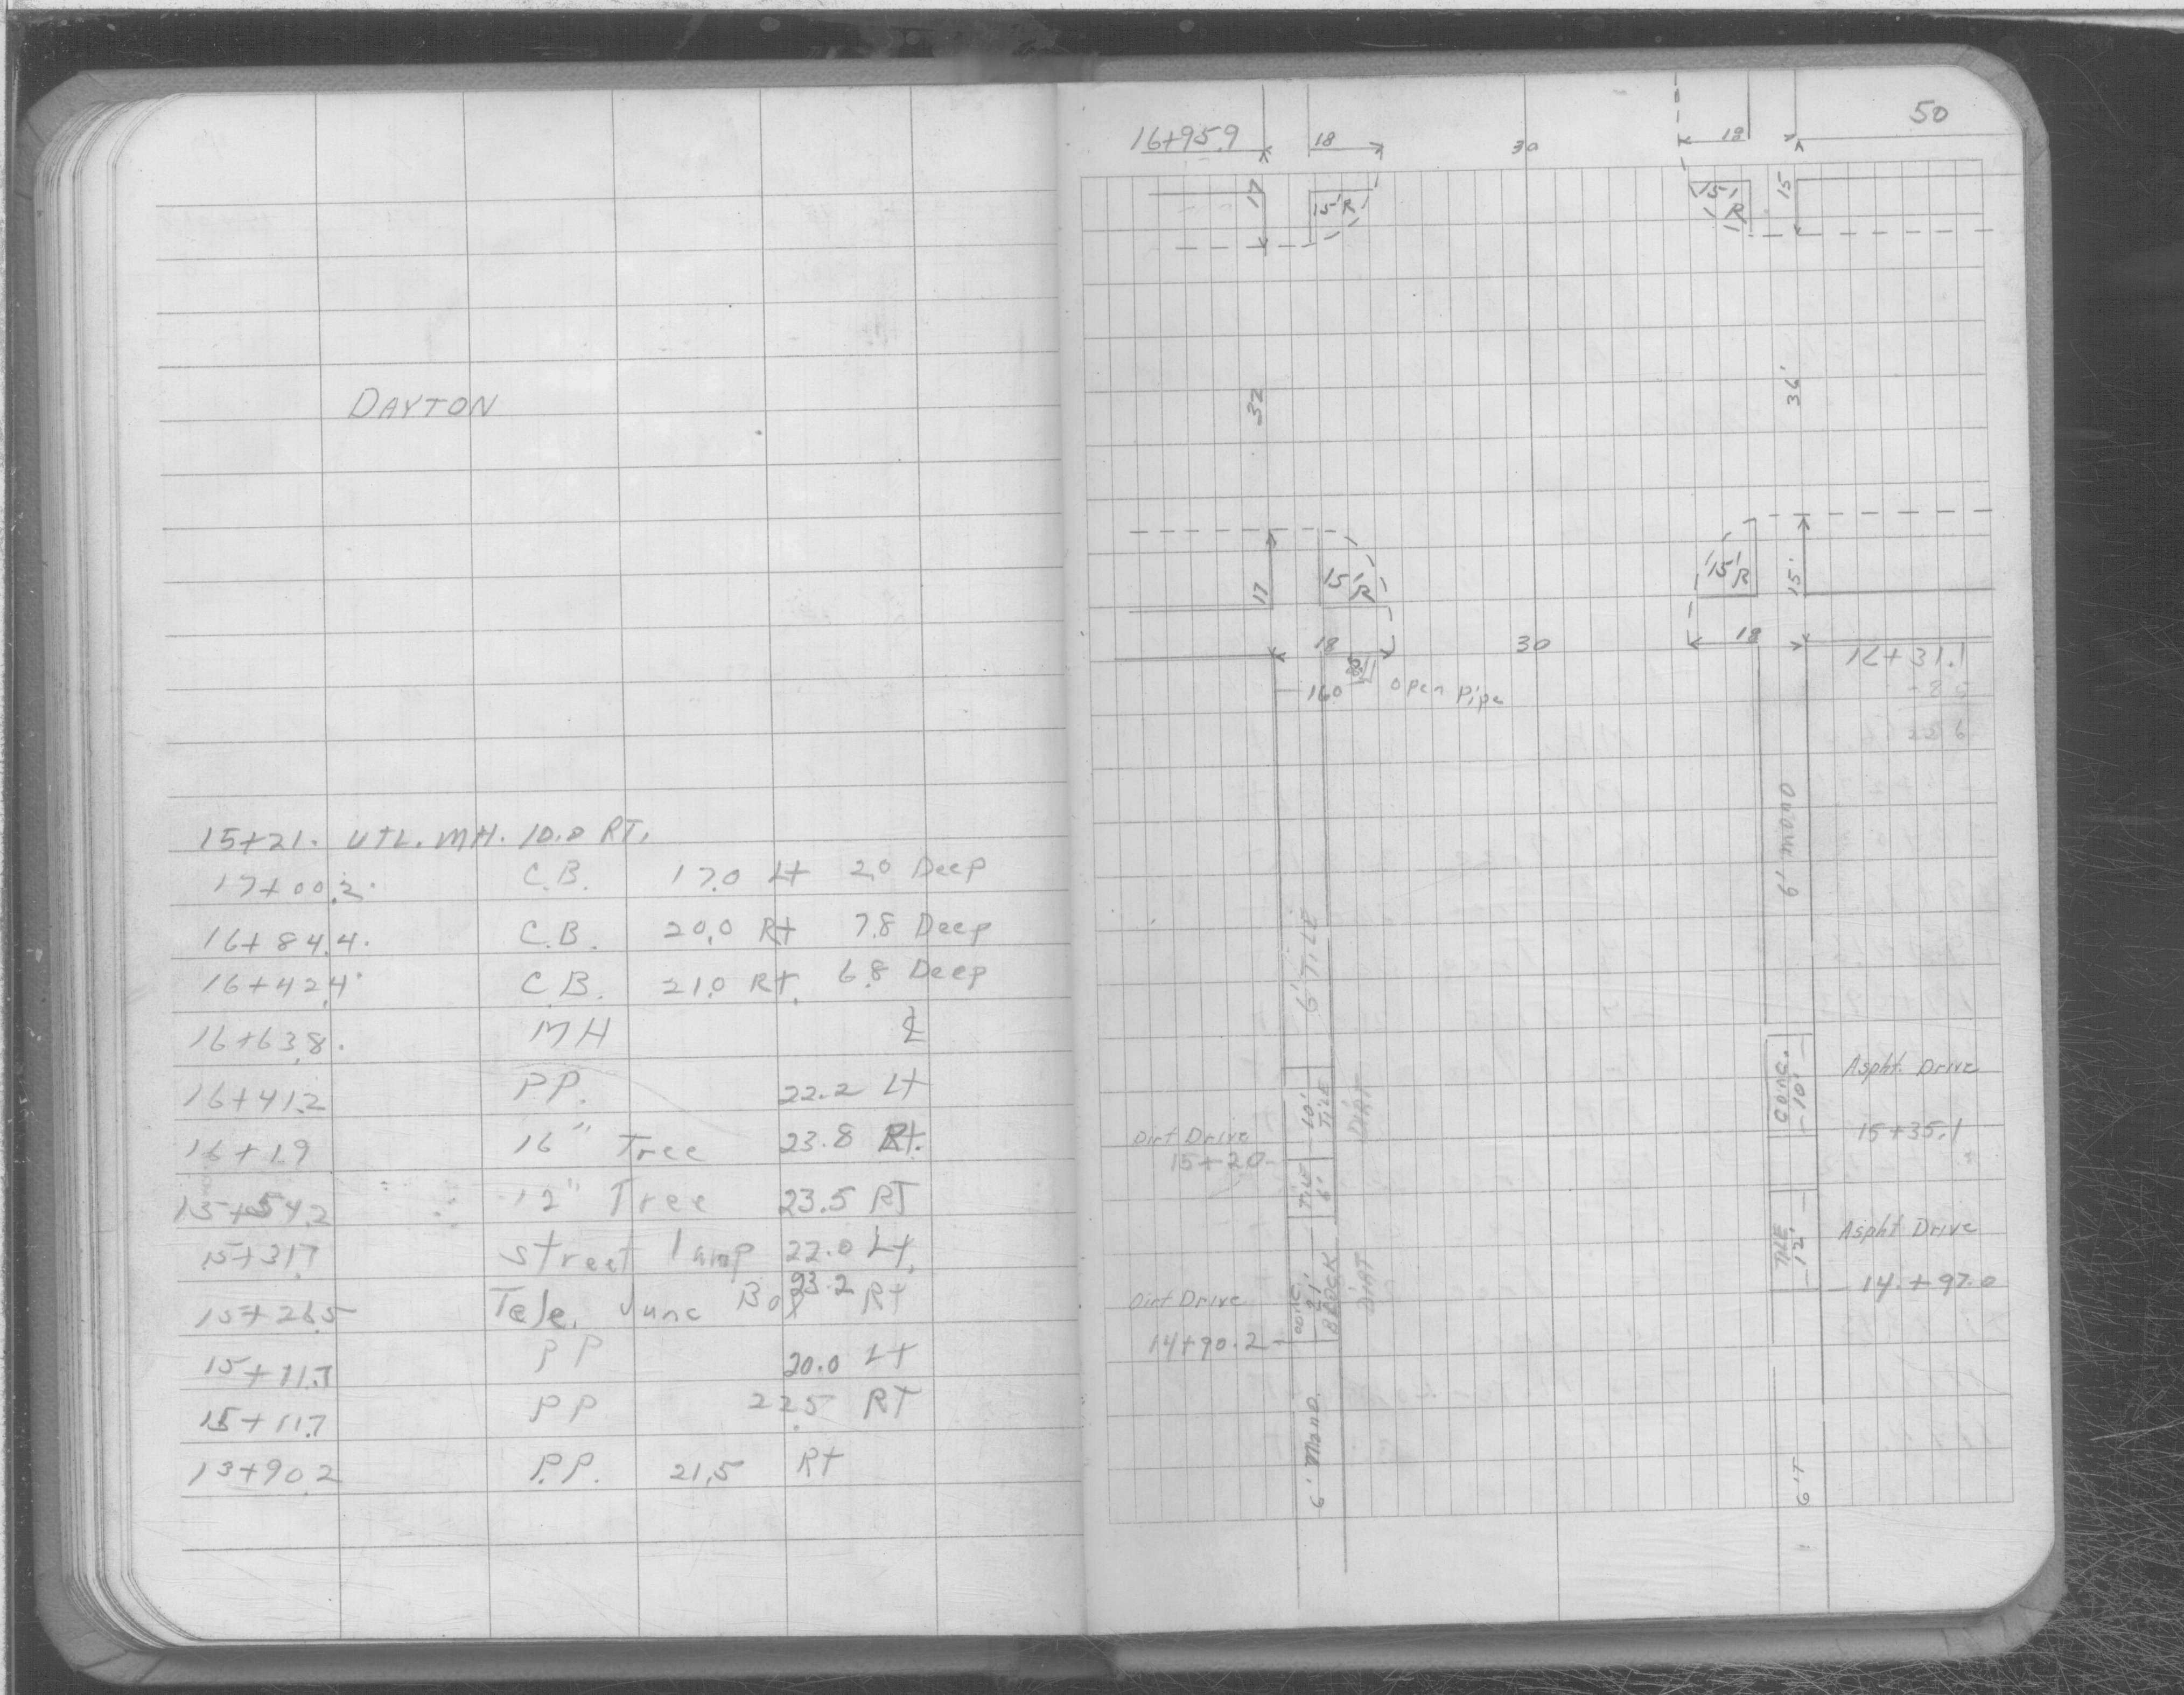 DAYTON
15+21. UTL. MH. 10.0 RT.
17+00.2 C.B. 17.0 Lt 2.0 Deep
16+84.4. C.B. 20.0 Rt 7.8 Deep
16+42.4 C.B. 21.0 Rt. 6.8 Deep
16+63.8. MH ℄
16+41.2 P.P. 22.2 Lt
16+19 16" Tree 23.8 Rt.
15+54.2 12" Tree 23.5 RT
15+31.7 street lamp 22.0 Lt.
15+26.5 Tele. Junc Box 23.2 Rt
15+11.7 PP 20.0 Lt
15+11.7 PP 22.5 RT
13+90.2 P.P. 21.5 Rt
50
16+95.9 18 30 18
17 15'R 15' R 15
32 36'
17 15' R 15'R 15'
18 30 18
16+31.1
16.0 open pipe
22 6
6' mono
6' TILE
CONC. 10' Aspht. Drive
10' TILE DIRT
Dirt Drive
15+20
15+35.1
6'
TILE 12' Aspht Drive
14.+97.0
Dirt Drive
21' BLOCK DIRT
14+90.2
6' Mono.
6'T